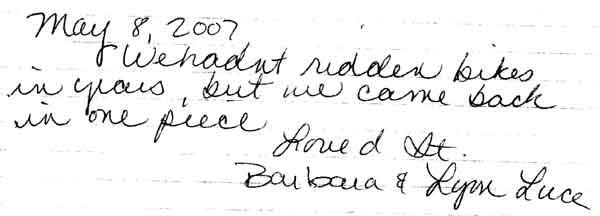 May 8, 2007
We hadnt ridden bikes
in years, but we came back
in one piece
Loved It.
Barbara & Lynn Luce